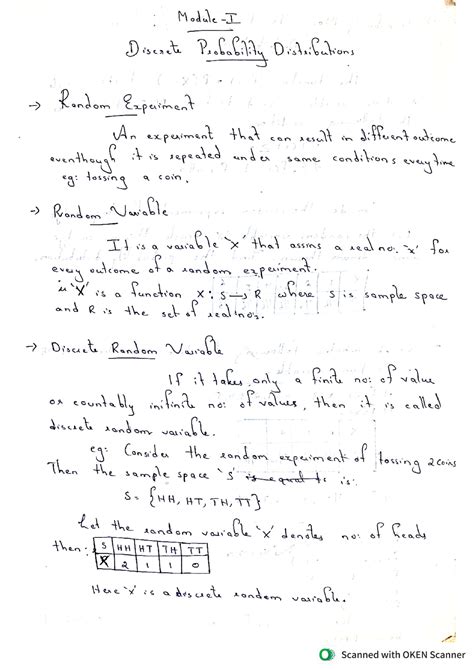 Module - I
Discrete Probability Distributions
→ Random Experiment
An experiment that can result in different outcome
eventhough it is repeated under same conditions everytime
eg: tossing a coin.
→ Random Variable
It is a variable 'X' that assins a real no. 'x' for
every outcome of a random experiment.
ie 'X' is a function X: S → R where S is sample space
and R is the set of real no's.
→ Discrete Random Variable
If it takes only a finite no: of value
or countably inifinite no: of values, then it is called
discrete random variable.
eg: Consider the random experiment of tossing 2 coins
Then the sample space 'S' is equal to is:
S = {HH, HT, TH, TT}
Let the random variable 'X' denotes no: of heads
then: S HH HT TH TT
X 2 1 1 0
Here 'X' is a discrete random variable.
Scanned with OKEN Scanner